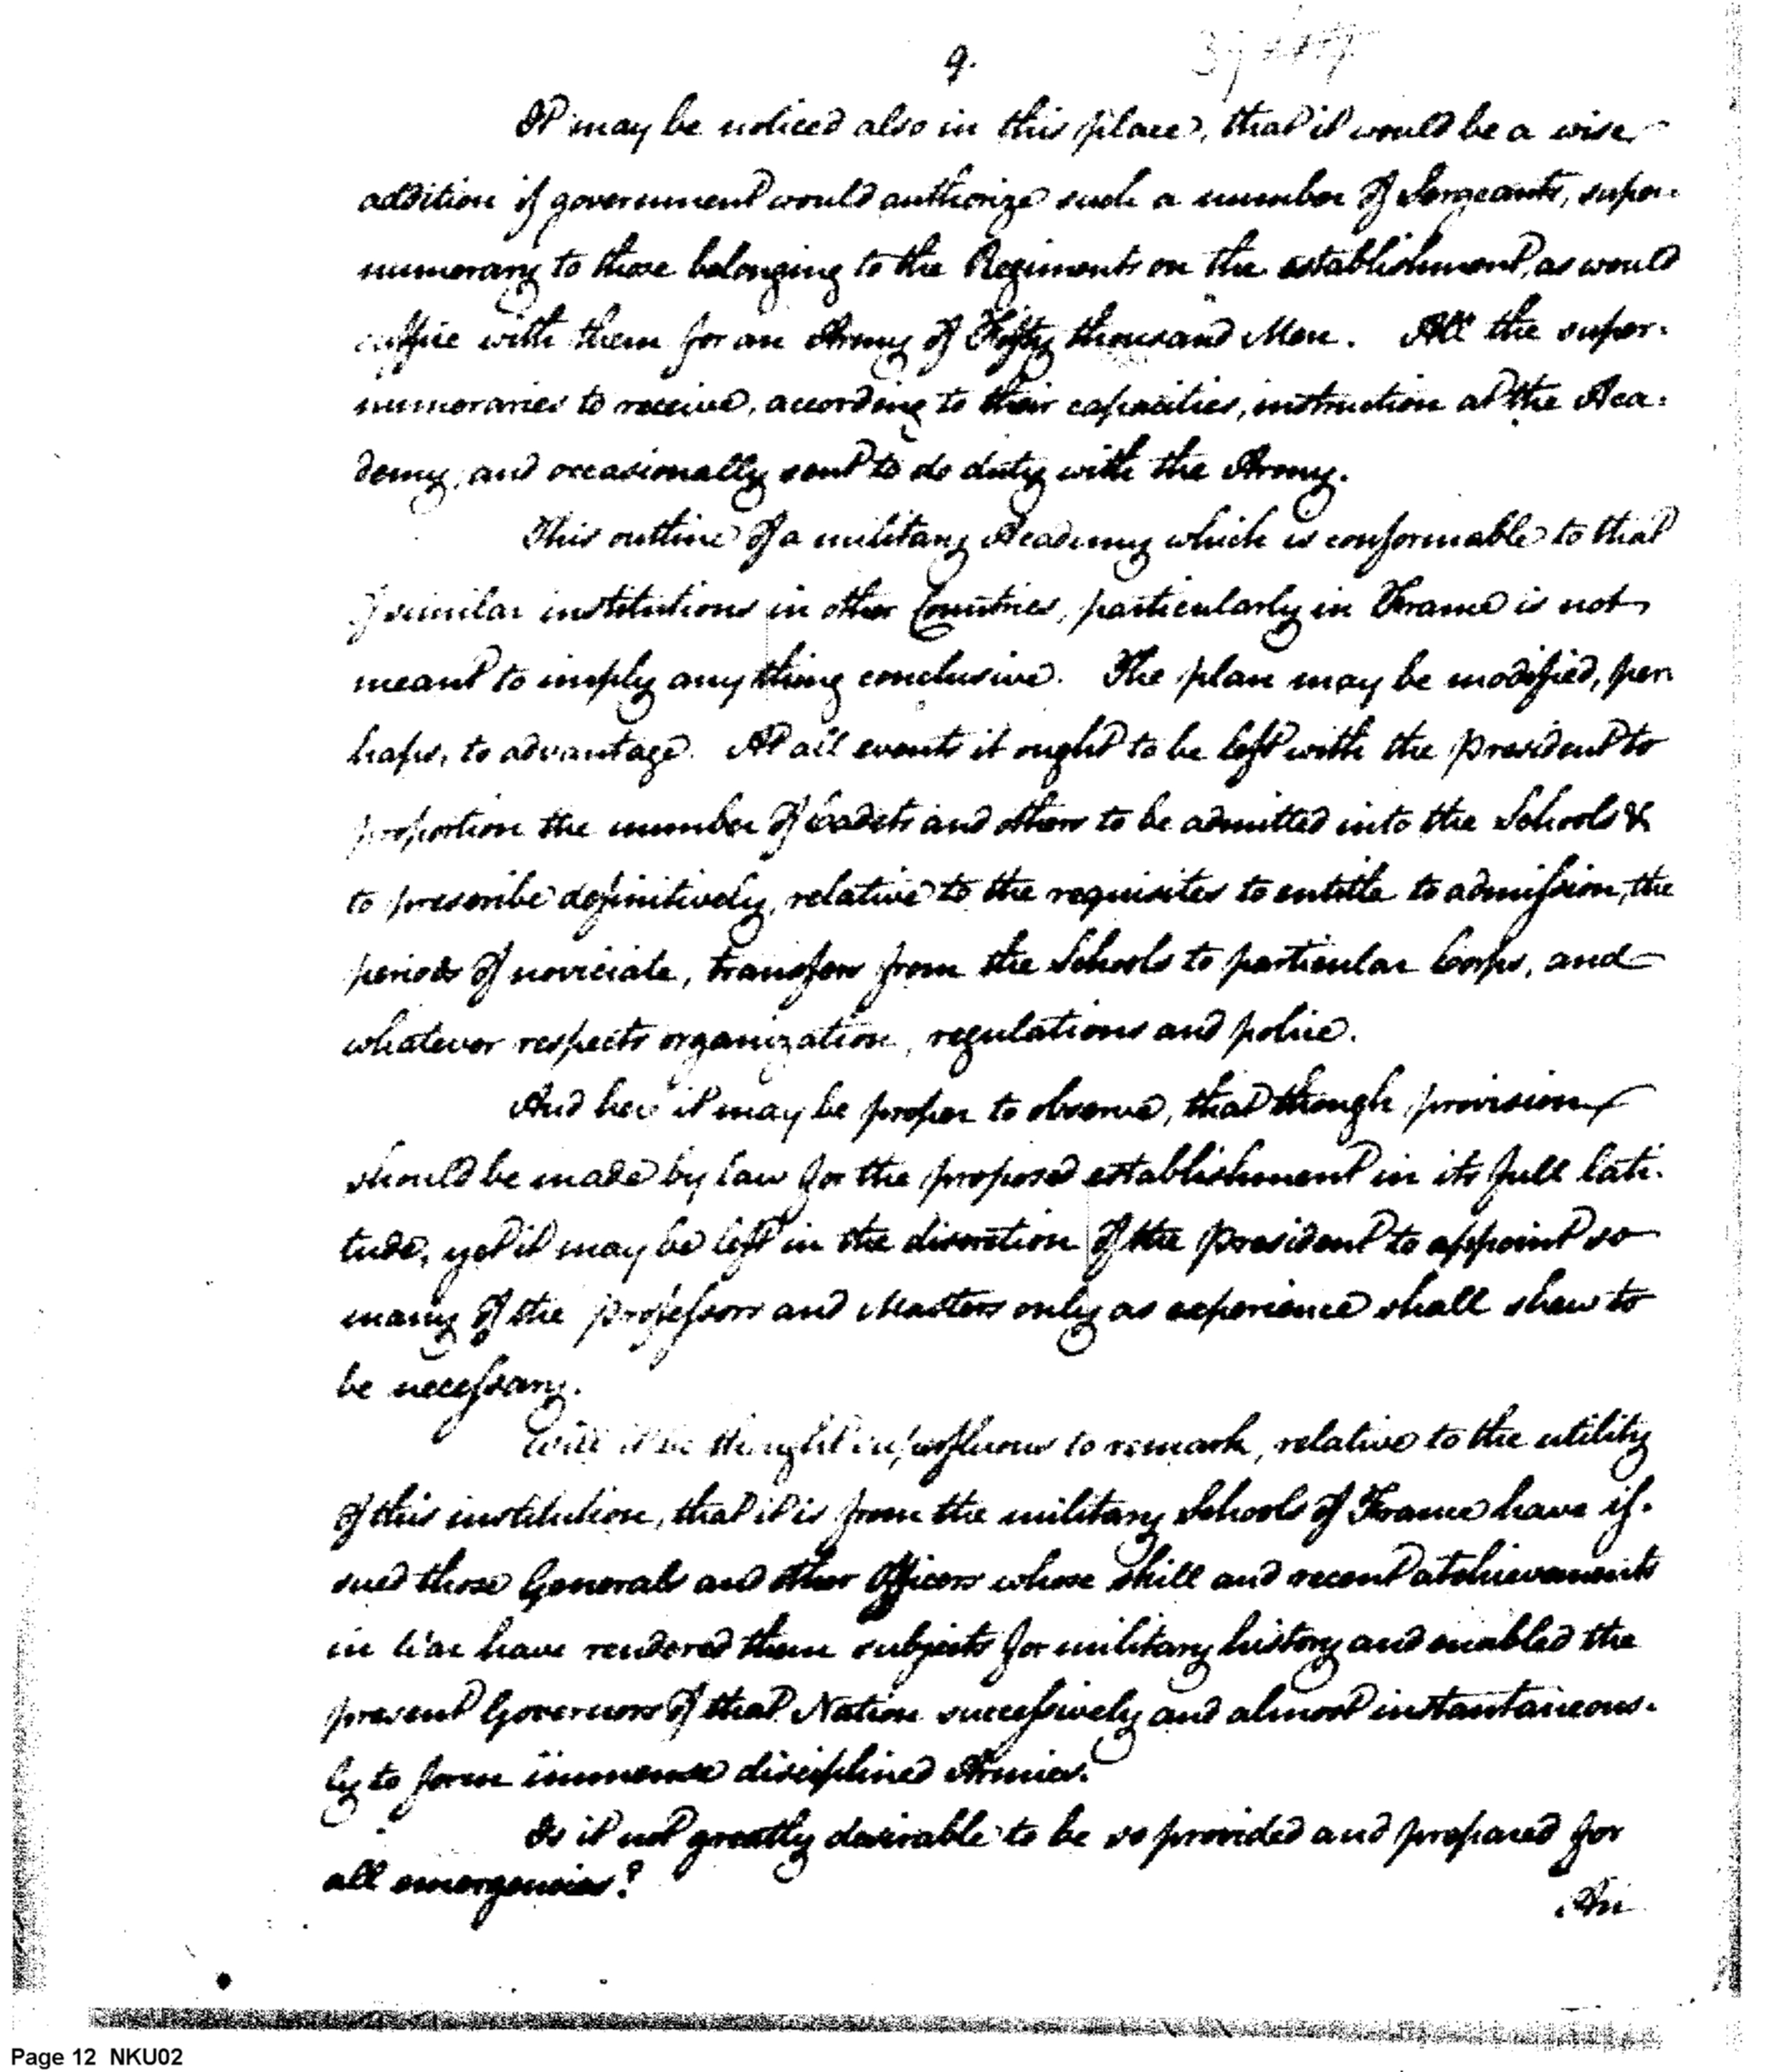 9.
It may be noticed also in this place, that it would be a wise
addition if government would authorize such a number of Sergeants, super-
numerary to those belonging to the Regiments on the establishment, as would
suffice with them for an Army of Fifty thousand Men. All the super-
numeraries to receive, according to their capacities, instruction at the Aca-
demy, and occasionally sent to do duty with the Army.
This outline of a military Academy which is conformable to that
of similar institutions in other Countries, particularly in France is not
meant to imply any thing conclusive. The plan may be modified, per
haps, to advantage. At all events it ought to be left with the President to
proportion the number of Cadets and others to be admitted into the Schools &
to prescribe definitively, relative to the requisites to entitle to admission, the
periods of noviciate, transfers from the Schools to particular Corps, and
whatever respects organization, regulations and police.
And here it may be proper to observe, that though provision
should be made by law for the proposed establishment in its full lati-
tude, yet it may be left in the discretion of the President to appoint so
many of the Professors and Masters only as experience shall shew to
be necessary.
Will it be thought superfluous to remark, relative to the utility
of this institution, that it is from the military Schools of France have is-
sued those Generals and other Officers whose skill and recent atchievements
in War have rendered them subjects for military history and enabled the
present Governors of that Nation successively and almost instantaneous-
ly to form immense disciplined Armies.
Is it not greatly desirable to be so provided and prepared for
all emergencies?
An
Page 12 NKU02